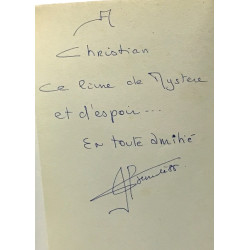 A
Christian
Ce livre de Mystère
et d'espoir...
En toute amitié